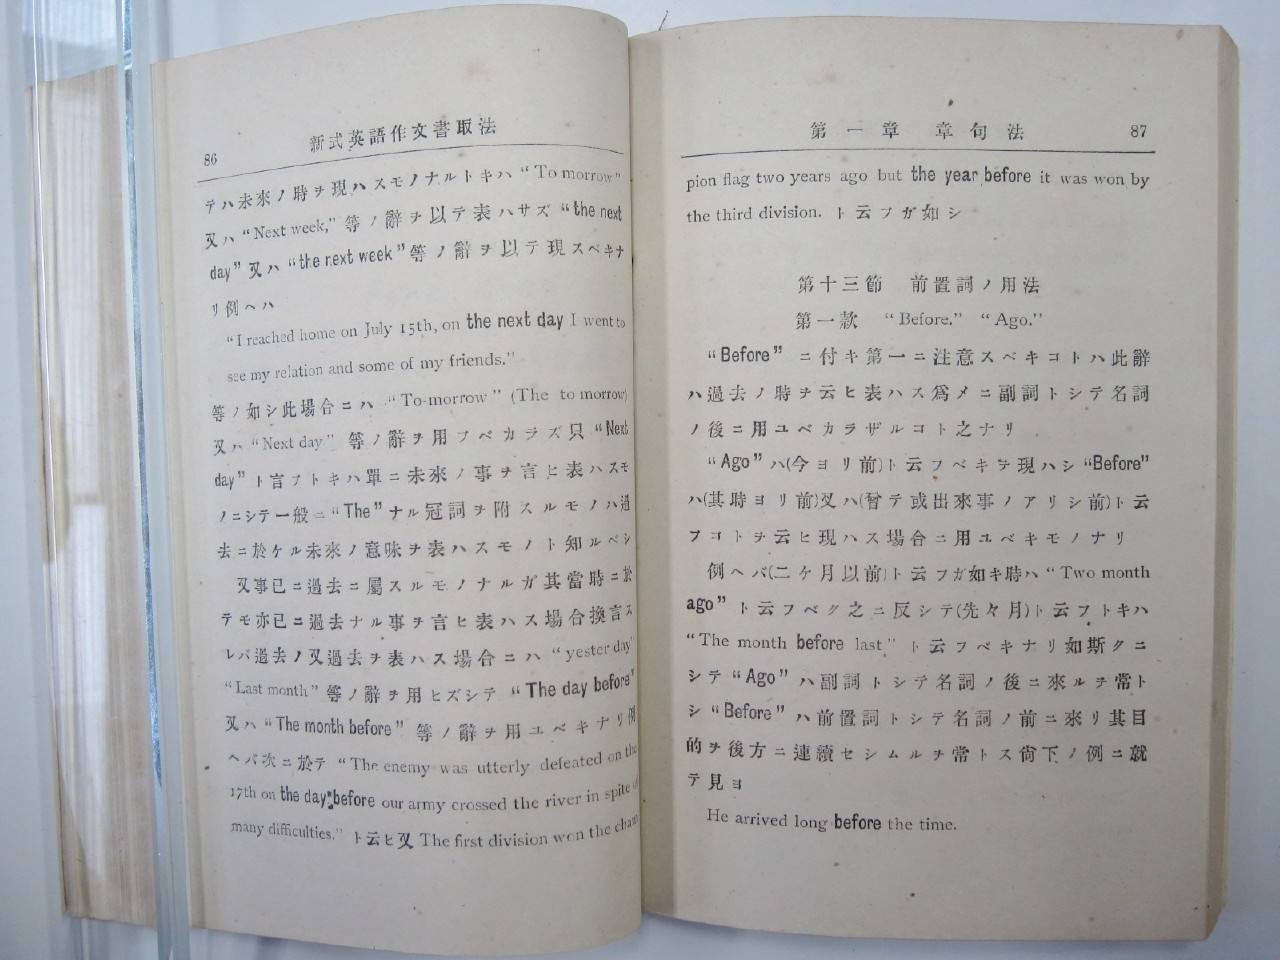 86
新式英語作文書取法
テハ未來ノ時ヲ現ハスモノナルトキハ “To morrow”
又ハ “Next week,” 等ノ辭ヲ以テ表ハサズ “the next
day” 又ハ “the next week” 等ノ辭ヲ以テ現スベキナ
リ例ヘハ
“I reached home on July 15th, on the next day I went to
see my relation and some of my friends.”
等ノ如シ此場合ニハ “To-morrow” (The to morrow)
又ハ “Next day” 等ノ辭ヲ用フベカラズ只 “Next
day” ト言フトキハ單ニ未來ノ事ヲ言ヒ表ハスモ
ノニシテ一般ニ “The” ナル冠詞ヲ附スルモノハ過
去ニ於ケル未來ノ意味ヲ表ハスモノト知ルベシ
又事已ニ過去ニ屬スルモノナルガ其當時ニ於
テモ亦已ニ過去ナル事ヲ言ヒ表ハス場合換言ス
レバ過去ノ又過去ヲ表ハス場合ニハ “yester day”
“Last month” 等ノ辭ヲ用ヒズシテ “The day before”
又ハ “The month before” 等ノ辭ヲ用ユベキナリ例
ヘバ次ニ於テ “The enemy was utterly defeated on the
17th on the day before our army crossed the river in spite of
many difficulties.” ト云ヒ又 The first division won the cham
第一章 章句法
87
pion flag two years ago but the year before it was won by
the third division. ト云フガ如シ
第十三節 前置詞ノ用法
第一款 “Before.” “Ago.”
“Before” ニ付キ第一ニ注意スベキコトハ此辭
ハ過去ノ時ヲ云ヒ表ハス爲メニ副詞トシテ名詞
ノ後ニ用ユベカラザルコト之ナリ
“Ago” ハ(今ヨリ前)ト云フベキヲ現ハシ “Before”
ハ(其時ヨリ前)又ハ(曾テ或出來事ノアリシ前)ト云
フコトヲ云ヒ現ハス場合ニ用ユベキモノナリ
例ヘバ(二ケ月以前)ト云フガ如キ時ハ “Two month
ago” ト云フベク之ニ反シテ(先々月)ト云フトキハ
“The month before last” ト云フベキナリ如斯クニ
シテ “Ago” ハ副詞トシテ名詞ノ後ニ來ルヲ常ト
シ “Before” ハ前置詞トシテ名詞ノ前ニ來リ其目
的ヲ後方ニ連續セシムルヲ常トス尙下ノ例ニ就
テ見ヨ
He arrived long before the time.